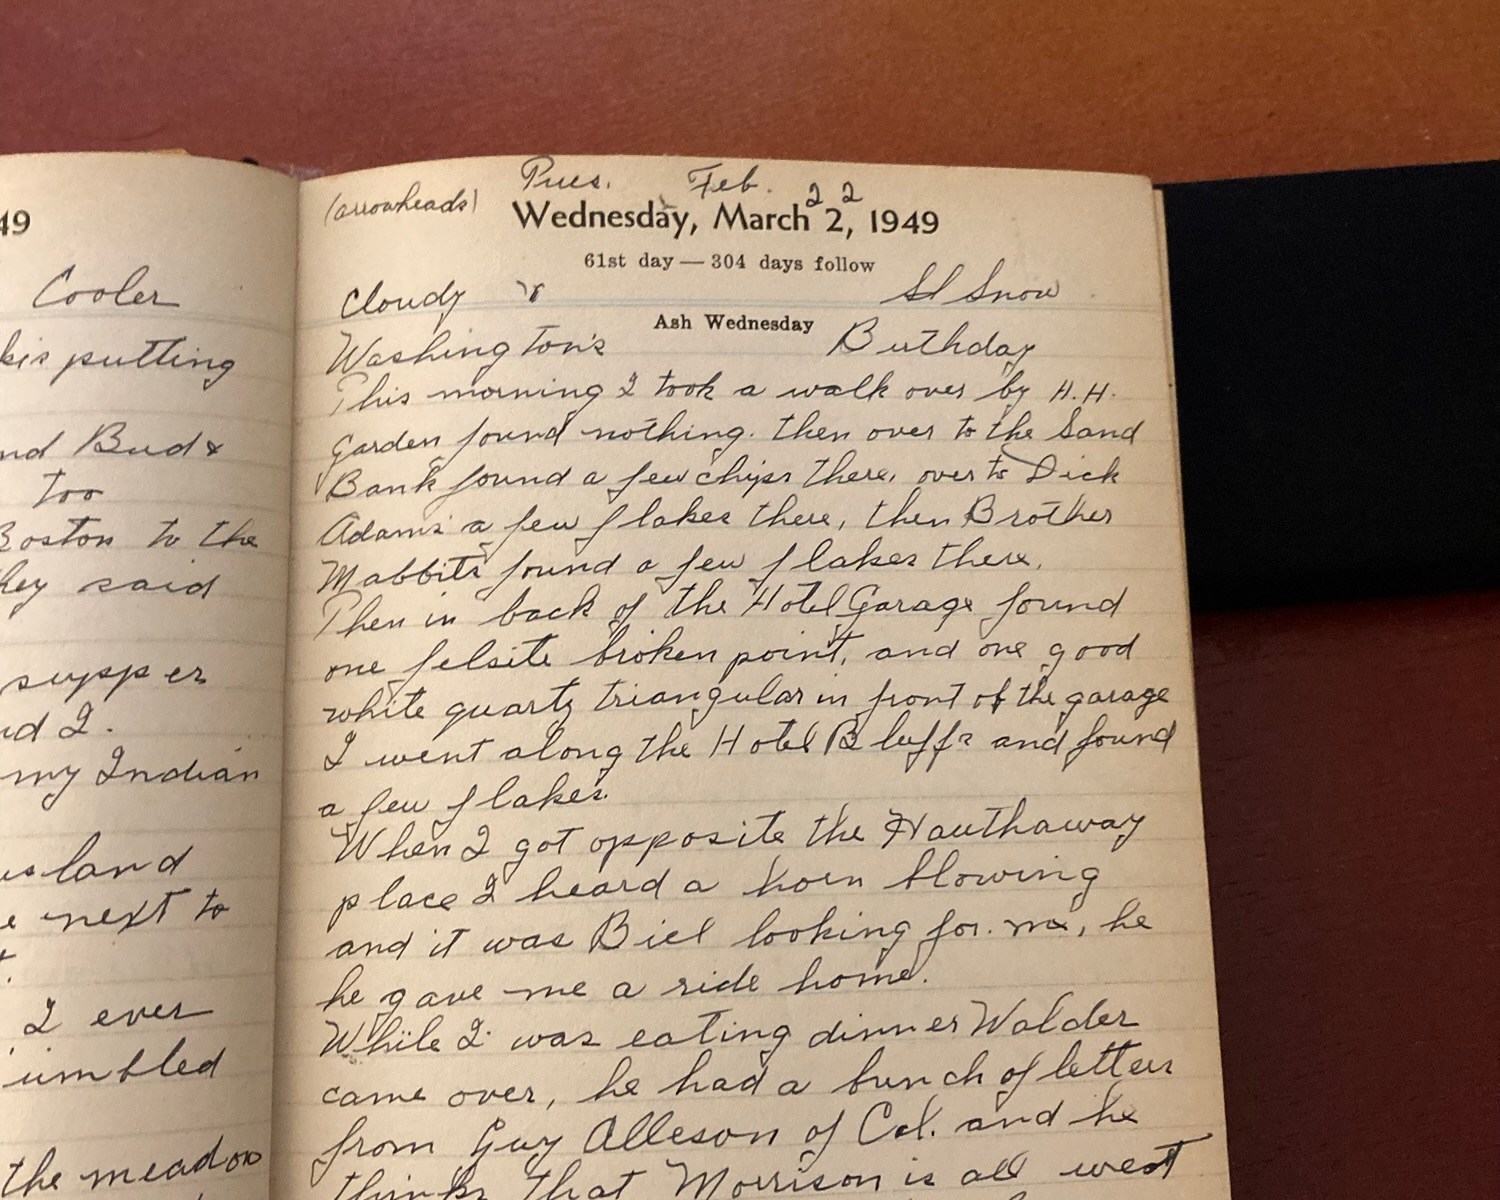 49
Cooler
putting
nd Bud &
too
Boston to the
they said
supper
nd I.
my Indian
island
e next to
I ever
umbled
the meadow
(arrowheads)
Tues. Feb. 22
Wednesday, March 2, 1949
61st day — 304 days follow
Cloudy Sl Snow
Ash Wednesday
Washington's Birthday
This morning I took a walk over by H.H.
Garden found nothing. then over to the Sand
Bank found a few chips there, over to Dick
Adams a few flakes there, then Brother
Mabbitts found a few flakes there.
Then in back of the Hotel Garage found
one felsite broken point, and one good
white quartz triangular in front of the garage
I went along the Hotel Bluffs and found
a few flakes.
When I got opposite the Hauthaway
place I heard a horn blowing
and it was Biel looking for me, he
he gave me a ride home.
While I was eating dinner Walder
came over, he had a bunch of letters
from Guy Alleson of Cal. and he
thinks that Morrison is all weat